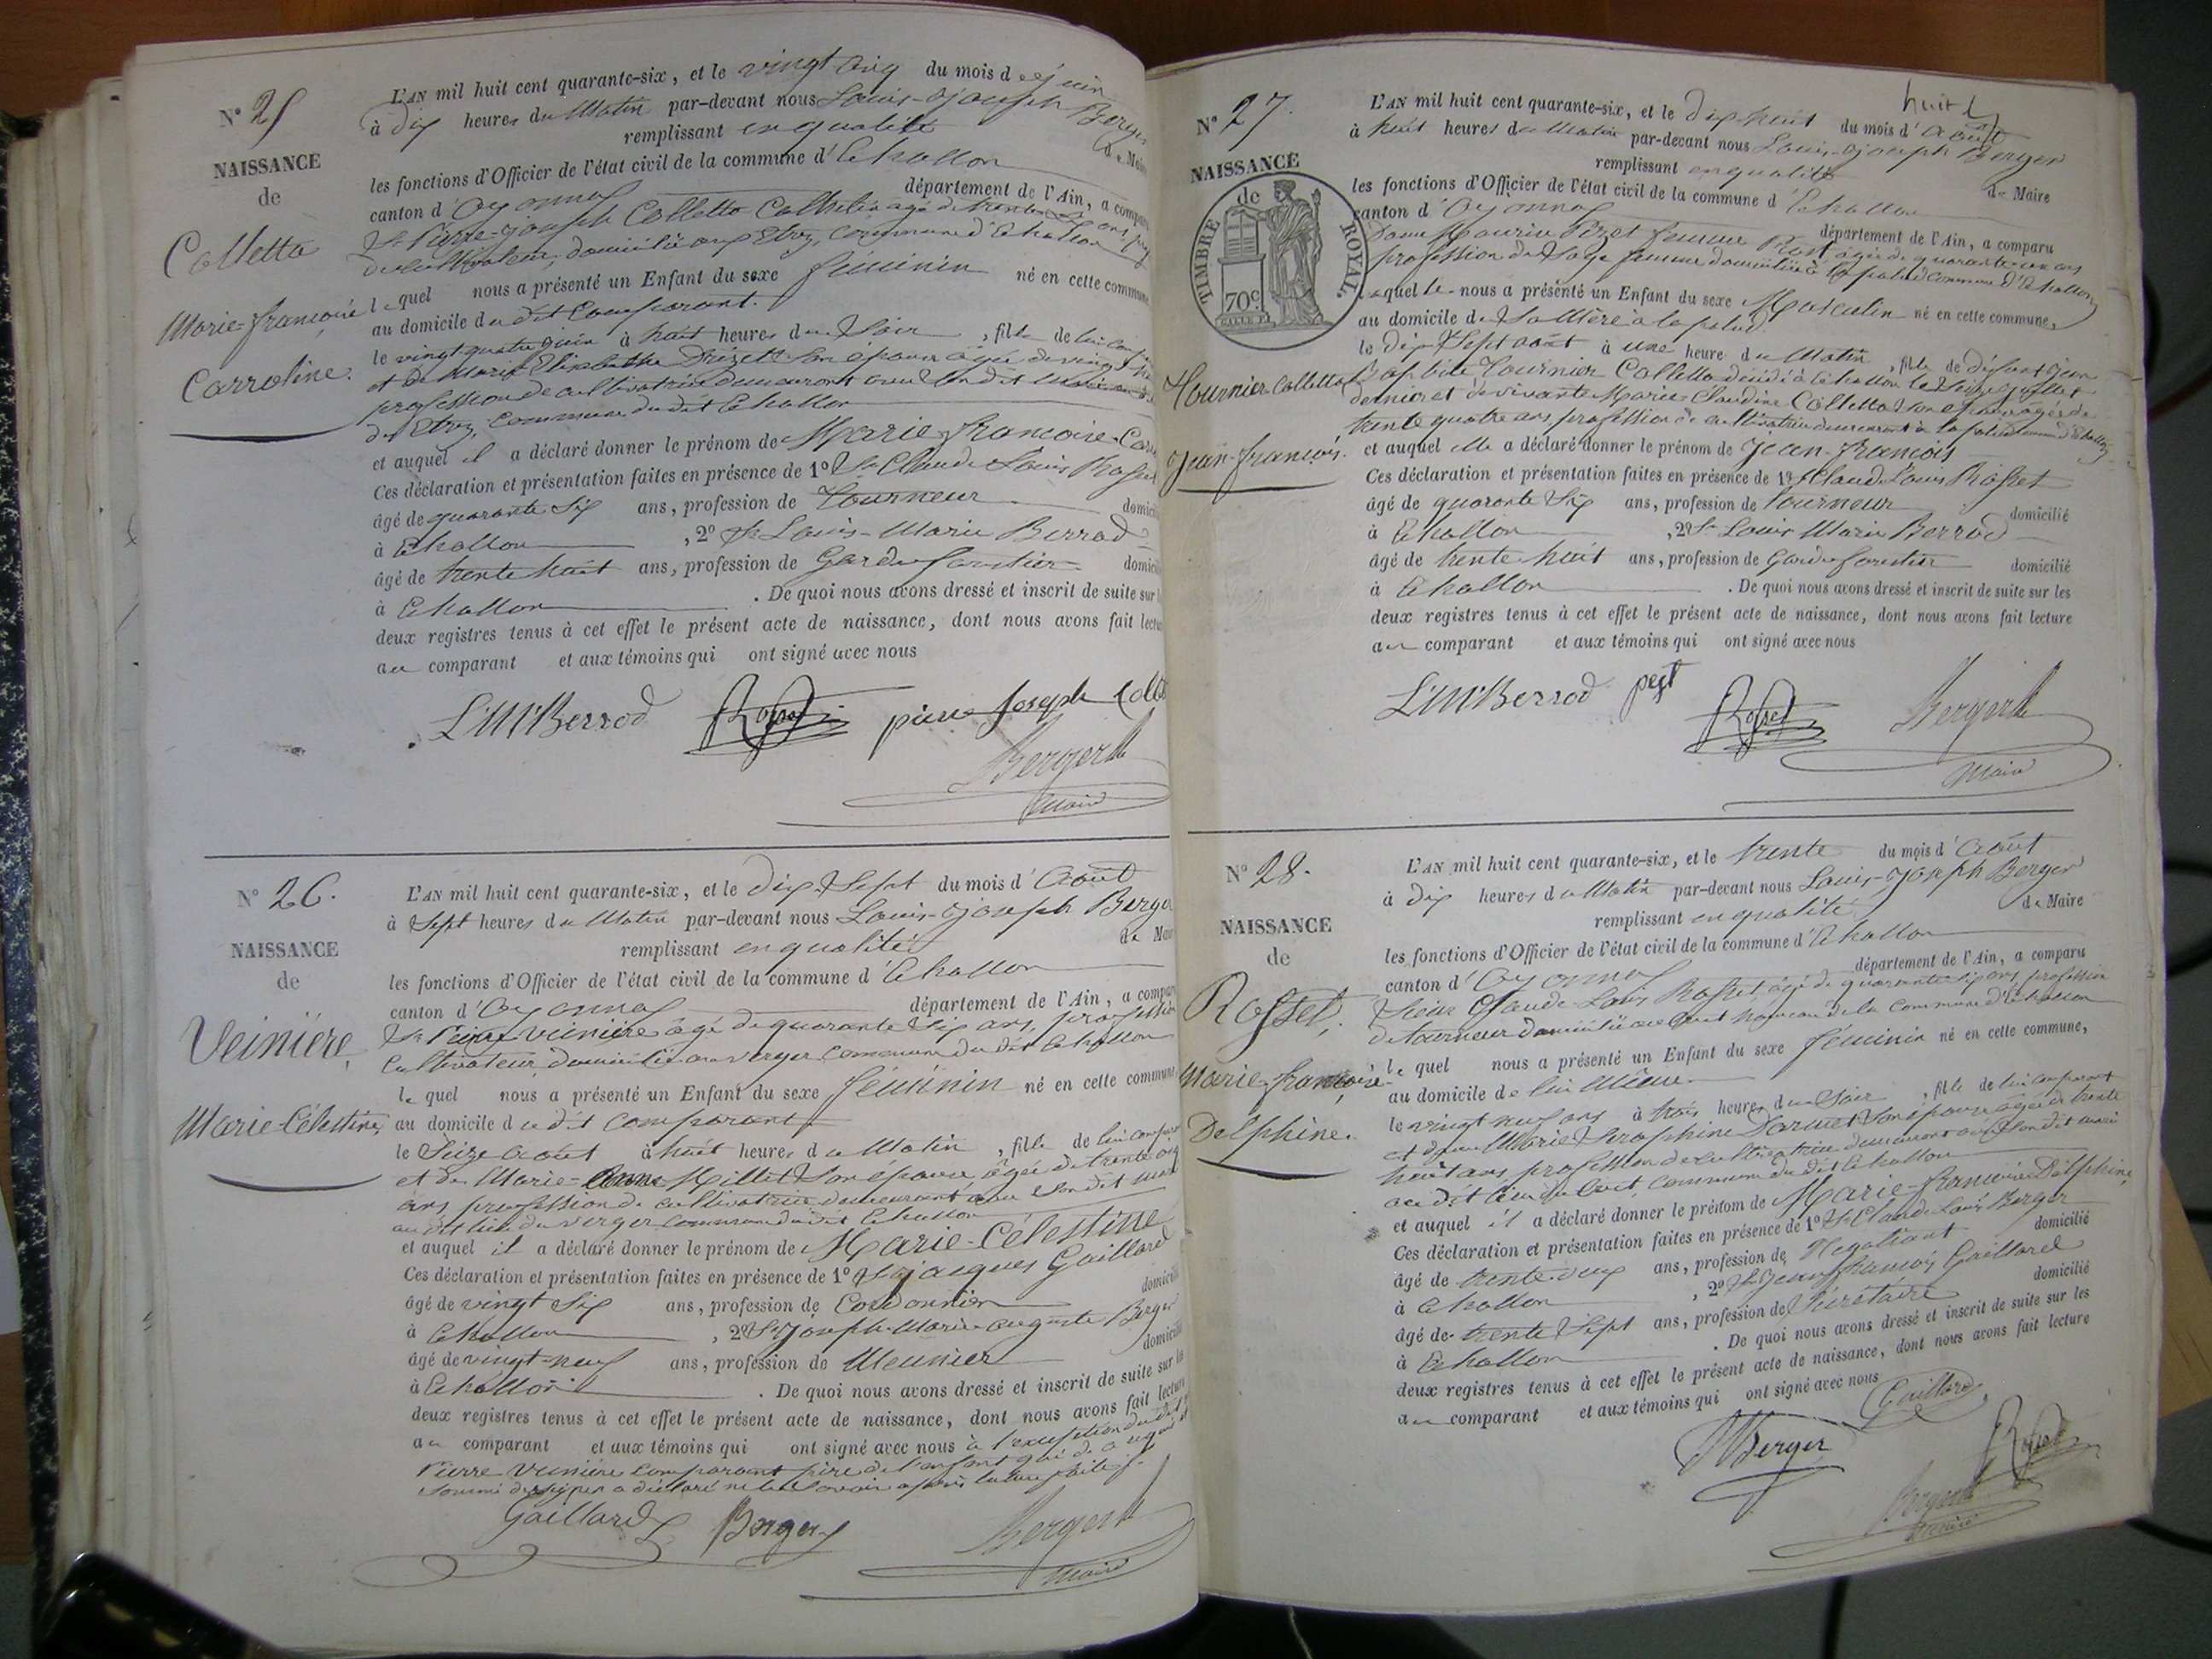 N° 25
NAISSANCE
de
Colletta
Marie-françoise
Carroline.
L'AN mil huit cent quarante-six, et le vingt cinq du mois de juin
à dix heures du Matin par-devant nous Louis-Joseph Berger
remplissant en qualité de Maire
les fonctions d'Officier de l'état civil de la commune d'Echallon
canton d'Oyonnax département de l'Ain, a comparu
Sr Pierre-joseph Colletta
de cultivateur, domicilié aux Etrez, commune d'Echallon
lequel nous a présenté un Enfant du sexe féminin né en cette commune
au domicile du dit Comparant.
le vingt quatre juin à huit heures du Soir, fille de lui comparant
et de Marie Elisabethe son épouse âgée de vingt
profession de cultivatrice demeurant avec son dit mari
des Etrez, commune du dit Echallon
et auquel il a déclaré donner le prénom de Marie françoise Car
Ces déclaration et présentation faites en présence de 1° Sr Claude Louis Rosset
âgé de quarante Six ans, profession de Tourneur domicilié
à Echallon, 2° Sr Louis-Marie Berrod
âgé de trente huit ans, profession de Garde forestier domicilié
à Echallon. De quoi nous avons dressé et inscrit de suite sur
deux registres tenus à cet effet le présent acte de naissance, dont nous avons fait lecture
au comparant et aux témoins qui ont signé avec nous
L.M. Berrod Rosset pierre Joseph Colle
Berger
Maire
N° 26.
NAISSANCE
de
Veinière,
Marie-Célestine,
L'AN mil huit cent quarante-six, et le dix-Sept du mois d'Août
à Sept heures du Matin par-devant nous Louis-Joseph Berger
remplissant en qualité de Maire
les fonctions d'Officier de l'état civil de la commune d'Echallon
canton d'Oyonnax département de l'Ain, a comparu
Sr Pierre Veinière âgé de quarante Six ans, profession
cultivateur, domicilié au verger commune du dit Echallon
lequel nous a présenté un Enfant du sexe féminin né en cette commune
au domicile du dit comparant
le Seize août à huit heures du Matin, fille de lui comparant
et de Marie- Millet Son épouse, âgée de trente
ans, profession de cultivatrice demeurant avec Son dit mari
au dit lieu du verger commune du dit Echallon
et auquel il a déclaré donner le prénom de Marie-Célestine
Ces déclaration et présentation faites en présence de 1° Sr jacques Gaillard
âgé de vingt Six ans, profession de Cordonnier domicilié
à Echallon, 2° Sr Joseph-Marie-auguste Berger
âgé de vingt-neuf ans, profession de Meunier domicilié
à Echallon. De quoi nous avons dressé et inscrit de suite sur les
deux registres tenus à cet effet le présent acte de naissance, dont nous avons fait lecture
au comparant et aux témoins qui ont signé avec nous à l'exception du dit
Pierre Veinière comparant père de l'enfant qui de ce requis et
Sommé de signer a déclaré ne le Savoir après lecture faite
Gaillard Berger Berger
Maire
N° 27.
NAISSANCE
de
TIMBRE ROYAL.
70c
Tournier Colletta
Jean-françois.
huit
L'AN mil huit cent quarante-six, et le dix huit du mois d'août
à huit heures du Matin par-devant nous Louis-Joseph Berger
remplissant en qualité de Maire
les fonctions d'Officier de l'état civil de la commune d'Echallon
canton d'Oyonnax département de l'Ain, a comparu
Dame Maurise Pezet femme âgée de quarante ans
profession de Sage femme domiciliée à la palud commune d'Echallon
laquelle nous a présenté un Enfant du sexe Masculin né en cette commune,
au domicile de Sa Mère à la palud
le dix Sept août à une heure du Matin, fils de défunt Jean
Baptiste Tournier Colletta décédé à Echallon le juillet
dernier et de vivante Marie Claudine Colletta son épouse âgée de
trente quatre ans, profession de cultivatrice demeurant à la palud commune d'Echallon
et auquel elle a déclaré donner le prénom de Jean-françois
Ces déclaration et présentation faites en présence de 1° Sr Claude Louis Rosset
âgé de quarante Six ans, profession de Tourneur domicilié
à Echallon, 2° Sr Louis Marie Berrod
âgé de trente huit ans, profession de Garde forestier domicilié
à Echallon. De quoi nous avons dressé et inscrit de suite sur les
deux registres tenus à cet effet le présent acte de naissance, dont nous avons fait lecture
au comparant et aux témoins qui ont signé avec nous
L.M. Berrod Rosset Berger
Maire
N° 28.
NAISSANCE
de
Rosset,
Marie-françoise
Delphine.
L'AN mil huit cent quarante-six, et le trente du mois d'Août
à dix heures du Matin par-devant nous Louis-Joseph Berger
remplissant en qualité de Maire
les fonctions d'Officier de l'état civil de la commune d'Echallon
canton d'Oyonnax département de l'Ain, a comparu
Sieur Claude Louis Rosset âgé de quarante six ans, profession
de tourneur domicilié au hameau de la commune d'Echallon
lequel nous a présenté un Enfant du sexe féminin né en cette commune,
au domicile de lui Même
le vingt neuf à trois heures du Soir, fille de lui comparant
et de Marie Séraphine Son épouse âgée de trente
huit ans, profession de cultivatrice demeurant avec Son dit mari
au dit lieu commune du dit Echallon
et auquel il a déclaré donner le prénom de Marie-françoise Delphine,
Ces déclaration et présentation faites en présence de 1° Sr Claude Louis Berger
âgé de trente-deux ans, profession de Négotiant domicilié
à Echallon, 2° Sr Jean françois Gaillard
âgé de trente Sept ans, profession de Sécrétaire domicilié
à Echallon. De quoi nous avons dressé et inscrit de suite sur les
deux registres tenus à cet effet le présent acte de naissance, dont nous avons fait lecture
au comparant et aux témoins qui ont signé avec nous
Gaillard
Berger Rosset
Berger
Maire